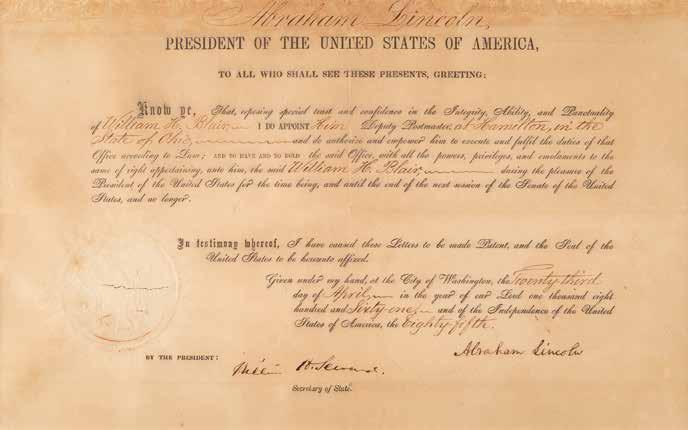 Abraham Lincoln,
PRESIDENT OF THE UNITED STATES OF AMERICA,
TO ALL WHO SHALL SEE THESE PRESENTS, GREETING:
Know ye, That, reposing special trust and confidence in the Integrity, Ability, and Punctuality
of William H. Blair, I DO APPOINT Him Deputy Postmaster, at Hamilton, in the
State of Ohio, and do authorize and empower him to execute and fulfil the duties of that
Office according to Law; AND TO HAVE AND TO HOLD the said Office, with all the powers, privileges, and emoluments to the
same of right appertaining, unto him, the said William H. Blair, during the pleasure of the
President of the United States for the time being, and until the end of the next session of the Senate of the United
States, and no longer.
In testimony whereof, I have caused these Letters to be made Patent, and the Seal of the
United States to be hereunto affixed.
Given under my hand, at the City of Washington, the Twenty third
day of April, in the year of our Lord one thousand eight
hundred and Sixty-one, and of the Independence of the United
States of America, the Eighty fifth.
Abraham Lincoln
BY THE PRESIDENT:
William H. Seward.
Secretary of State.